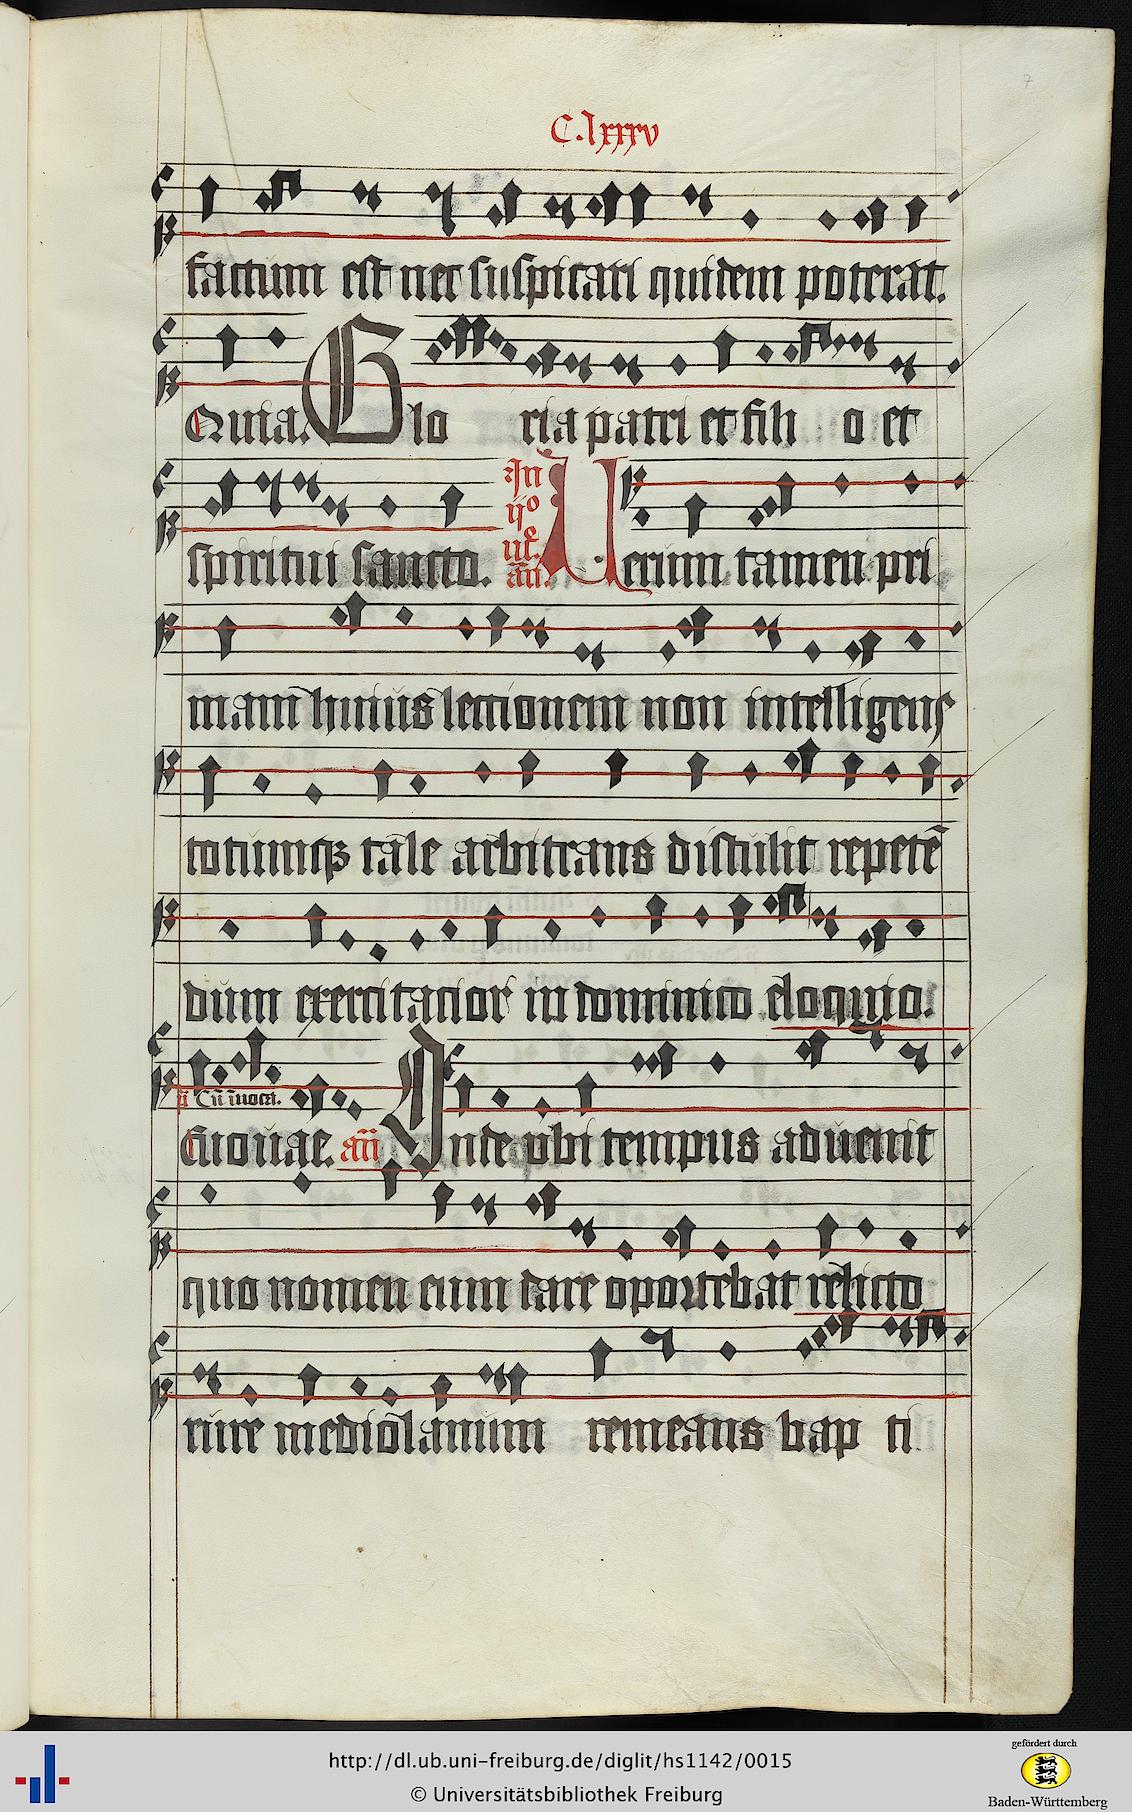 7
C.lxxxv
factum est nec suspicari quidem poterat.
Quia. Glo ria patri et fili o et
spiritui sancto. In ijo nt. an. Uerum tamen pri
mam huius lectionem non intelligens
totumq₃ tale arbitrans distulit repetē
dum exercitatior in dominico eloquio.
p̄s Cū īuocā. Euouae. an̄ Inde ubi tempus aduenit
quo nomen eum dare oportebat relicto
rure mediolanum remeans bap ti
http://dl.ub.uni-freiburg.de/diglit/hs1142/0015
© Universitätsbibliothek Freiburg
gefördert durch
Baden-Württemberg